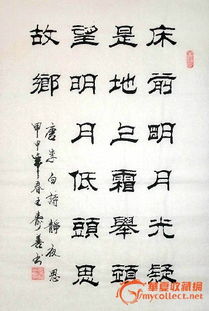 床前明月光疑
是地上霜舉頭
望明月低頭思
故鄉
唐李白詩靜夜思
甲申年春王壽善书
华夏收藏网
mycollect.net